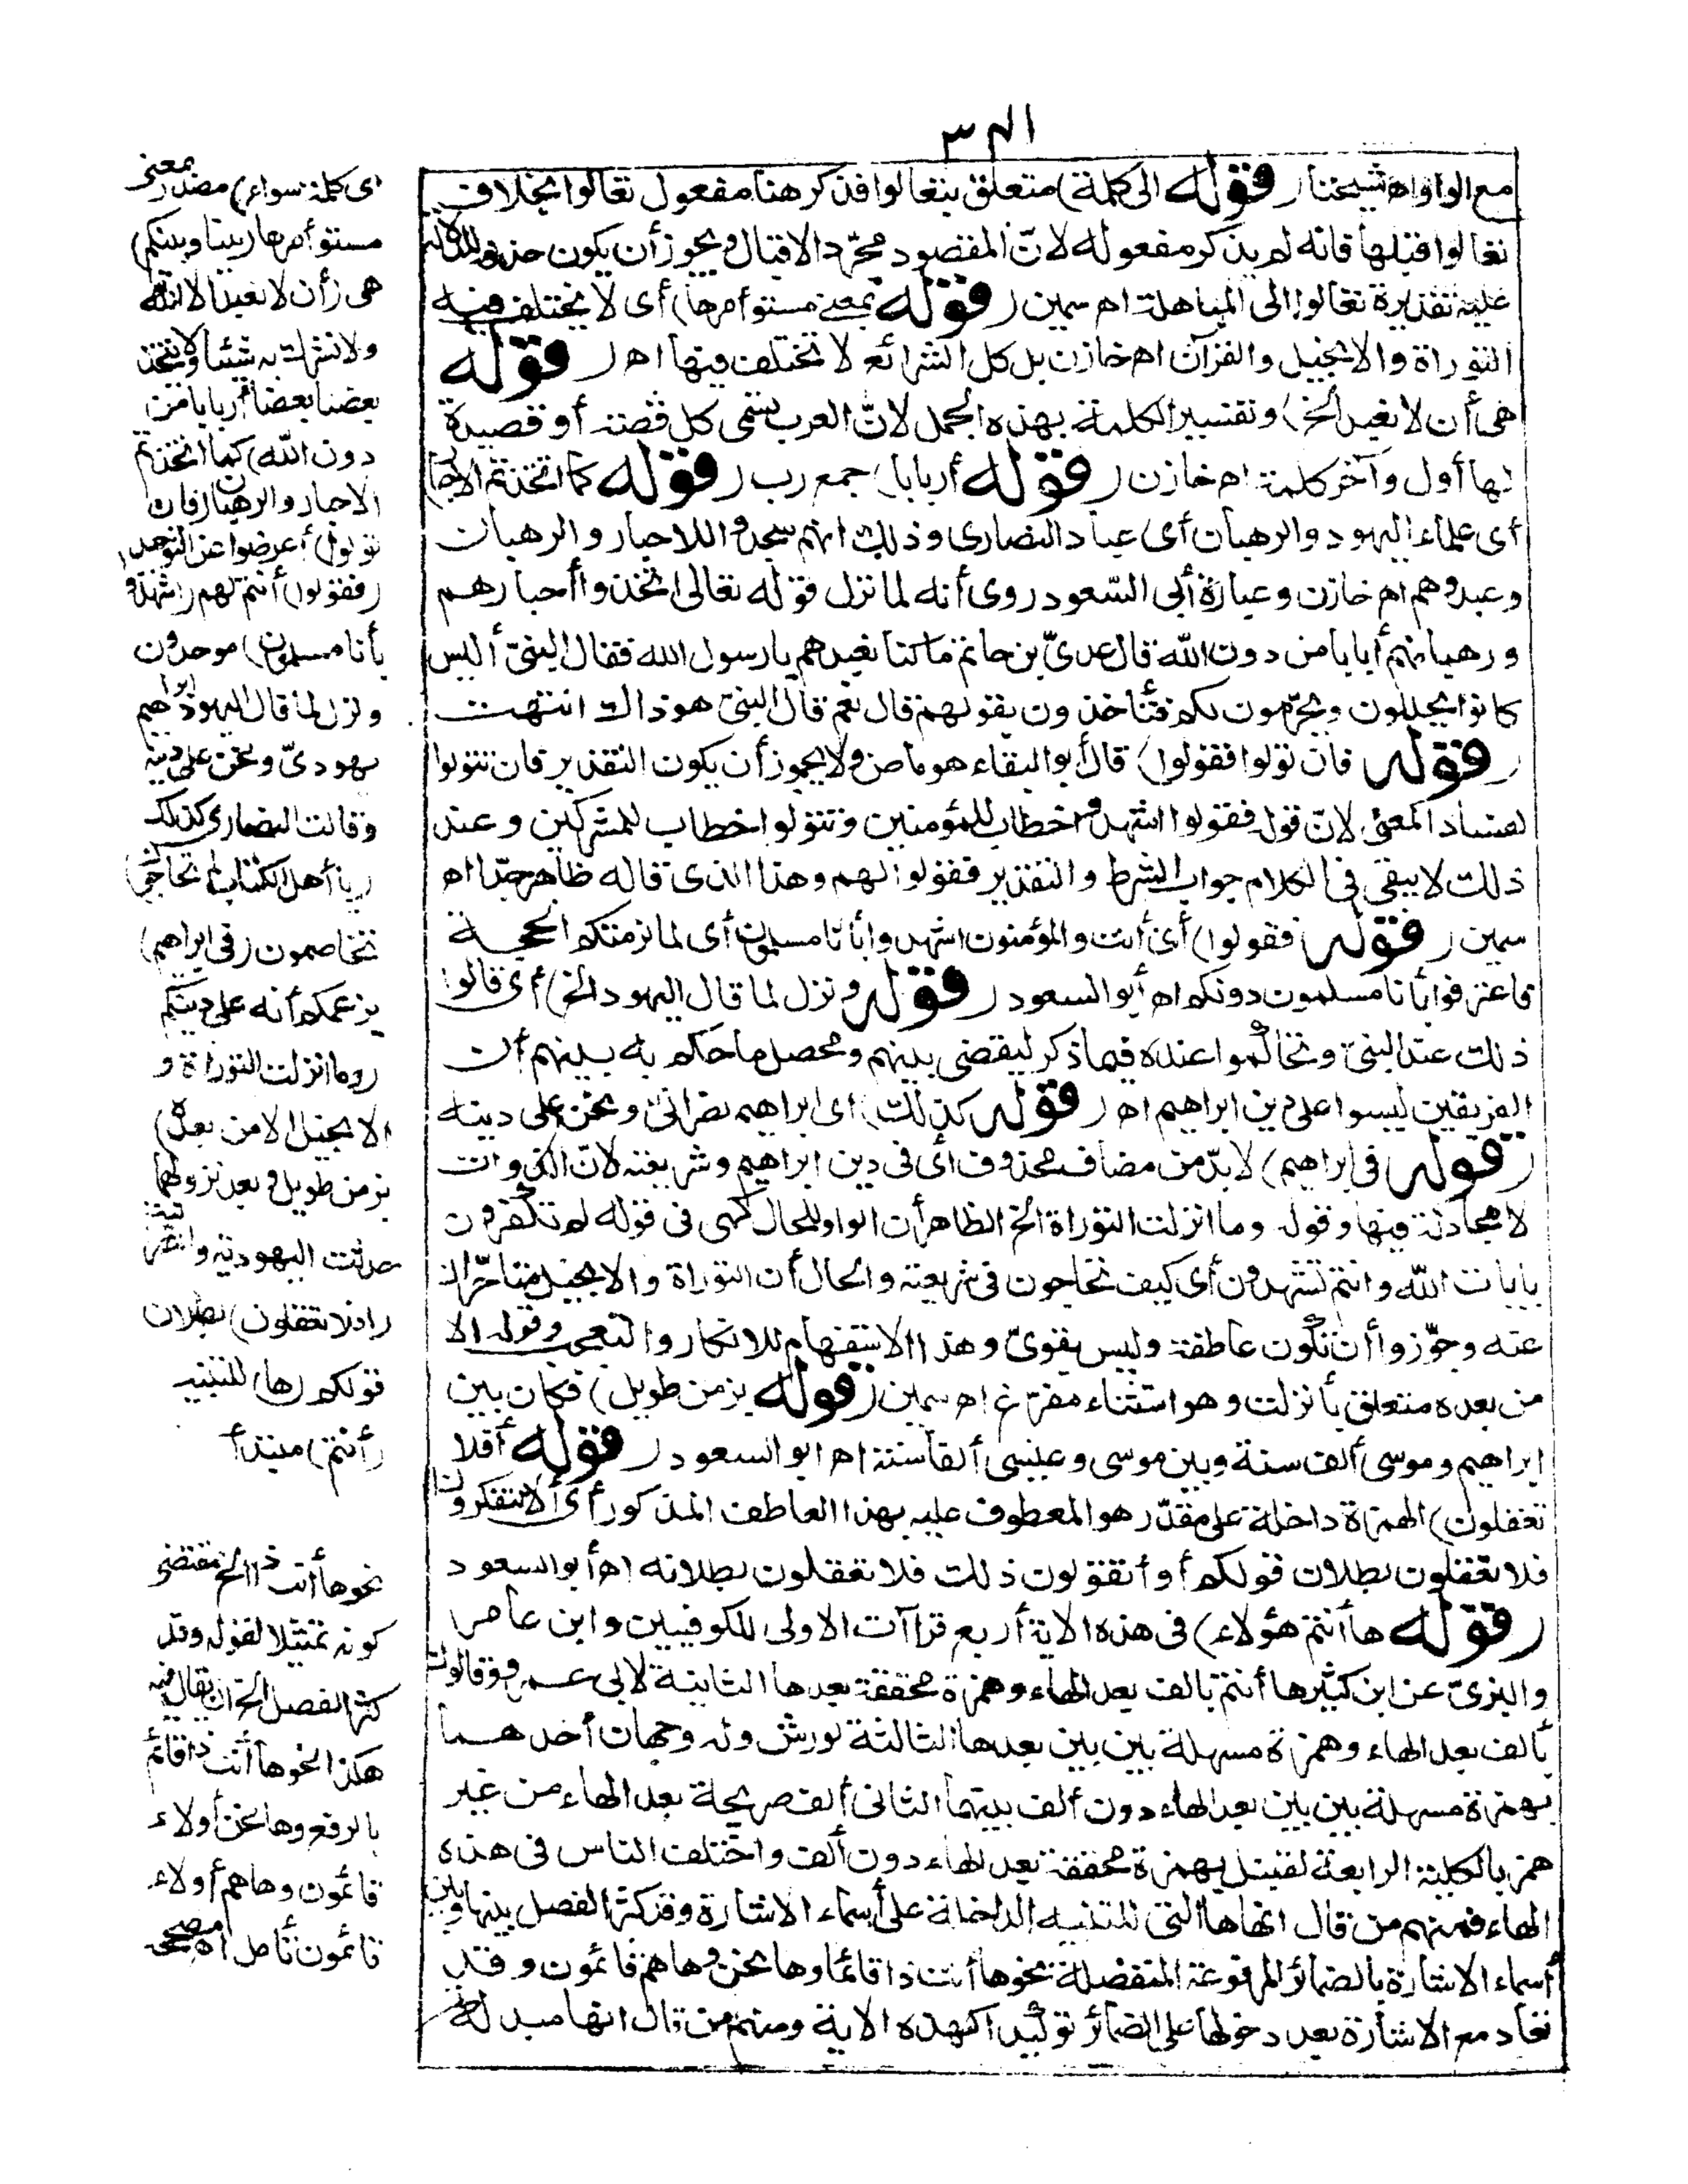 مع الواو اه شيخنا (قوله الى كلمة) متعلق بتعالوا فذكر هنا مفعول تعالوا بخلاف
تعالوا قبلها فانه لم يذكر مفعوله لانّ المقصود مجرّد الاقبال ويجوز أن يكون حذفه للدلالة
عليه تقديره تعالوا الى المباهلة اه سمين (قوله بمعنى مستو أمرها) أى لا يختلف فيه
التوراة والانجيل والقرآن اه خازن بل كل الشرائع لا تختلف فيها اه (قوله
هى أن لا نعبد الخ) وتفسير الكلمة بهذه الجمل لانّ العرب تسمى كل قصة أو قصيدة
لها أول وآخر كلمة اه خازن (قوله أربابا) جمع رب (قوله كما اتخذتم الاحبار)
أى علماء اليهود والرهبان أى عباد النصارى وذلك انهم سجدوا للاحبار والرهبان
وعبدوهم اه خازن وعبارة أبى السّعود روى أنه لما نزل قوله تعالى اتخذوا أحبارهم
ورهبانهم أربابا من دون اللّه قال عدىّ بن حاتم ما كنا نعبدهم يا رسول الله فقال النبىّ أليس
كانوا يحللون ويحرّمون لكم فتأخذون بقولهم قال نعم قال النبىّ هو ذاك انتهت
(قوله فان تولوا فقولوا) قال أبو البقاء هو ماض ولا يجوز أن يكون التقدير فان تتولوا
لفساد المعنى لانّ قوله فقولوا اشهدوا خطاب للمؤمنين وتتولوا خطاب للمشركين وعند
ذلك لا يبقى فى الكلام جواب الشرط والتقدير فقولوا لهم وهذا الذى قاله ظاهر جدّا اه
سمين (قوله فقولوا) أى أنت والمؤمنون اشهدوا بأنا مسلمون أى لما لزمتكم الحجة
فاعترفوا بأنا مسلمون دونكم اه أبو السعود (قوله ونزل لما قال اليهود الخ) أى قالوا
ذلك عند النبىّ وتحاكموا عنده فيما ذكر ليقضى بينهم ومحصل ما حكم به بينهم أن
الفريقين ليسوا على دين ابراهيم اه (قوله كذلك) اى ابراهيم نصرانىّ ونحن على دينه
(قوله فى ابراهيم) لا بدّ من مضاف محذوف أى فى دين ابراهيم وشريعته لانّ الذوات
لا مجادلة فيها وقوله وما انزلت التوراة الخ الظاهر أن الواو للحال كهى فى قوله لم تكفرون
بايات اللّه وانتم تشهدون أى كيف تحاجون فى شريعته والحال أن التوراة والانجيل متأخّران
عنه وجوّزوا أن تكون عاطفة وليس بقوىّ وهذا الاستفهام للانكار والتعجب وقوله الا
من بعده متعلق بأنزلت وهو استثناء مفرّغ اه سمين (قوله بزمن طويل) فكان بين
ابراهيم وموسى ألف سنة وبين موسى وعيسى ألفا سنة اه ابو السعود (قوله أفلا
تعقلون) الهمزة داخلة على مقدّر هو المعطوف عليه بهذا العاطف المذكور أى ألا تتفكرون
فلا تعقلون بطلان قولكم أو أتقولون ذلك فلا تعقلون بطلانه اه أبو السعود
(قوله ها أنتم هؤلاء) فى هذه الاية أربع قراآت الاولى للكوفيين وابن عامر
والبزىّ عن ابن كثير ها أنتم بالف بعد الهاء وهمزة محققة بعدها الثانية لابى عمرو وقالون
بألف بعد الهاء وهمزة مسهلة بين بين بعدها الثالثة لورش وله وجهان أحدهما
بهمزة مسهلة بين بين بعد الهاء دون ألف بينهما الثانى ألف صريحة بعد الهاء من غير
همز بالكلية الرابعة لقنبل بهمزة محققة بعد الهاء دون ألف واختلف الناس فى هذه
الهاء فمنهم من قال انها ها التى للتنبيه الداخلة على أسماء الاشارة وقد كثر الفصل بينها وبين
أسماء الاشارة بالضمائر المرفوعة المنفصلة نحو ها أنت ذا قائما وها نحن وها هم قائمون وقد
تعاد مع الاشارة بعد دخولها على الضمائر توكيدا كهذه الاية ومنهم من قال انها مبدلة
اى كلمة سواء) مصدر بمعنى
مستو أمرها (بيننا وبينكم)
هى (أن لا نعبد الا اللّه
ولا نشرك به شيئا ولا يتخذ
بعضنا بعضا أربابا من
دون اللّه) كما اتخذتم
الاحبار والرهبان (فان
تولوا) أعرضوا عن التوحيد
(فقولوا) أنتم لهم (اشهدوا
بأنا مسلمون) موحدون
ونزل لما قال اليهود ابراهيم
يهودىّ ونحن على دينه
وقالت النصارى كذلك
(يا أهل الكتاب لم تحاجون)
تتخاصمون (فى ابراهيم)
بزعمكم أنه على دينكم
(وما انزلت التوراة و
الانجيل الا من بعده)
بزمن طويل وبعد نزولهما
حدثت اليهودية والنصرانية
(افلا تعقلون) بطلان
قولكم (ها) للتنبيه
(أنتم) مبتدأ
نحو ها أنت ذا الخ مقتضى
كونه تمثيلا لقوله وقد
كثر الفصل الخ ان يقال فيه
هكذا نحو ها أنت ذا قائم
بالرفع وها نحن أولاء
قائمون وها هم أولاء
قائمون تأمل اه مصححه